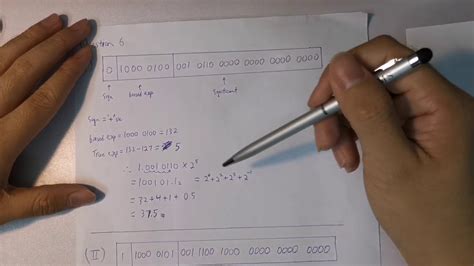 6
0 1000 0100 001 0110 0000 0000 0000 0000
Sign biased exp Significant
Sign = '+'ve
biased exp = 1000 0100 = 132
True exp = 132 - 127 = 5
∴ 1.001 0110 × 2⁵
= 100101.1₂ = 2⁵ + 2² + 2⁰ + 2⁻¹
= 32 + 4 + 1 + 0.5
= 37.5
(II) 1 1000 0101 001 1100 1000 0000 0000 0000